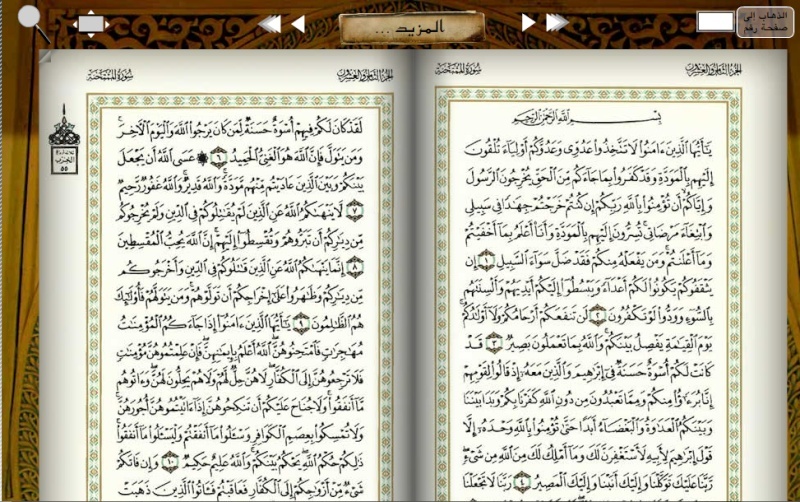 الذهاب إلى
صفحة رقم
المزيد ...
الجزء الثامن والعشرون
سورة الممتحنة
بِسْمِ اللَّهِ الرَّحْمَٰنِ الرَّحِيمِ
يَا أَيُّهَا الَّذِينَ آمَنُوا لَا تَتَّخِذُوا عَدُوِّي وَعَدُوَّكُمْ أَوْلِيَاءَ تُلْقُونَ
إِلَيْهِم بِالْمَوَدَّةِ وَقَدْ كَفَرُوا بِمَا جَاءَكُم مِّنَ الْحَقِّ يُخْرِجُونَ الرَّسُولَ
وَإِيَّاكُمْ أَن تُؤْمِنُوا بِاللَّهِ رَبِّكُمْ إِن كُنتُمْ خَرَجْتُمْ جِهَادًا فِي سَبِيلِي
وَابْتِغَاءَ مَرْضَاتِي تُسِرُّونَ إِلَيْهِم بِالْمَوَدَّةِ وَأَنَا أَعْلَمُ بِمَا أَخْفَيْتُمْ
وَمَا أَعْلَنتُمْ وَمَن يَفْعَلْهُ مِنكُمْ فَقَدْ ضَلَّ سَوَاءَ السَّبِيلِ ١ إِن
يَثْقَفُوكُمْ يَكُونُوا لَكُمْ أَعْدَاءً وَيَبْسُطُوا إِلَيْكُمْ أَيْدِيَهُمْ وَأَلْسِنَتَهُم
بِالسُّوءِ وَوَدُّوا لَوْ تَكْفُرُونَ ٢ لَن تَنفَعَكُمْ أَرْحَامُكُمْ وَلَا أَوْلَادُكُمْ
يَوْمَ الْقِيَامَةِ يَفْصِلُ بَيْنَكُمْ وَاللَّهُ بِمَا تَعْمَلُونَ بَصِيرٌ ٣ قَدْ
كَانَتْ لَكُمْ أُسْوَةٌ حَسَنَةٌ فِي إِبْرَاهِيمَ وَالَّذِينَ مَعَهُ إِذْ قَالُوا لِقَوْمِهِمْ
إِنَّا بُرَآءُ مِنكُمْ وَمِمَّا تَعْبُدُونَ مِن دُونِ اللَّهِ كَفَرْنَا بِكُمْ وَبَدَا بَيْنَنَا
وَبَيْنَكُمُ الْعَدَاوَةُ وَالْبَغْضَاءُ أَبَدًا حَتَّىٰ تُؤْمِنُوا بِاللَّهِ وَحْدَهُ إِلَّا
قَوْلَ إِبْرَاهِيمَ لِأَبِيهِ لَأَسْتَغْفِرَنَّ لَكَ وَمَا أَمْلِكُ لَكَ مِنَ اللَّهِ مِن شَيْءٍ
رَّبَّنَا عَلَيْكَ تَوَكَّلْنَا وَإِلَيْكَ أَنَبْنَا وَإِلَيْكَ الْمَصِيرُ ٤ رَبَّنَا لَا تَجْعَلْنَا
الجزء الثامن والعشرون
سورة الممتحنة
لَقَدْ كَانَ لَكُمْ فِيهِمْ أُسْوَةٌ حَسَنَةٌ لِّمَن كَانَ يَرْجُو اللَّهَ وَالْيَوْمَ الْآخِرَ
وَمَن يَتَوَلَّ فَإِنَّ اللَّهَ هُوَ الْغَنِيُّ الْحَمِيدُ ٦ ۞ عَسَى اللَّهُ أَن يَجْعَلَ
بَيْنَكُمْ وَبَيْنَ الَّذِينَ عَادَيْتُم مِّنْهُم مَّوَدَّةً وَاللَّهُ قَدِيرٌ وَاللَّهُ غَفُورٌ رَّحِيمٌ
٧ لَّا يَنْهَاكُمُ اللَّهُ عَنِ الَّذِينَ لَمْ يُقَاتِلُوكُمْ فِي الدِّينِ وَلَمْ يُخْرِجُوكُم
مِّن دِيَارِكُمْ أَن تَبَرُّوهُمْ وَتُقْسِطُوا إِلَيْهِمْ إِنَّ اللَّهَ يُحِبُّ الْمُقْسِطِينَ
٨ إِنَّمَا يَنْهَاكُمُ اللَّهُ عَنِ الَّذِينَ قَاتَلُوكُمْ فِي الدِّينِ وَأَخْرَجُوكُم
مِّن دِيَارِكُمْ وَظَاهَرُوا عَلَىٰ إِخْرَاجِكُمْ أَن تَوَلَّوْهُمْ وَمَن يَتَوَلَّهُمْ فَأُولَٰئِكَ
هُمُ الظَّالِمُونَ ٩ يَا أَيُّهَا الَّذِينَ آمَنُوا إِذَا جَاءَكُمُ الْمُؤْمِنَاتُ
مُهَاجِرَاتٍ فَامْتَحِنُوهُنَّ اللَّهُ أَعْلَمُ بِإِيمَانِهِنَّ فَإِنْ عَلِمْتُمُوهُنَّ مُؤْمِنَاتٍ
فَلَا تَرْجِعُوهُنَّ إِلَى الْكُفَّارِ لَا هُنَّ حِلٌّ لَّهُمْ وَلَا هُمْ يَحِلُّونَ لَهُنَّ وَآتُوهُم
مَّا أَنفَقُوا وَلَا جُنَاحَ عَلَيْكُمْ أَن تَنكِحُوهُنَّ إِذَا آتَيْتُمُوهُنَّ أُجُورَهُنَّ
وَلَا تُمْسِكُوا بِعِصَمِ الْكَوَافِرِ وَاسْأَلُوا مَا أَنفَقْتُمْ وَلْيَسْأَلُوا مَا أَنفَقُوا
ذَٰلِكُمْ حُكْمُ اللَّهِ يَحْكُمُ بَيْنَكُمْ وَاللَّهُ عَلِيمٌ حَكِيمٌ ١٠ وَإِن فَاتَكُمْ
شَيْءٌ مِّنْ أَزْوَاجِكُمْ إِلَى الْكُفَّارِ فَعَاقَبْتُمْ فَآتُوا الَّذِينَ ذَهَبَتْ
الحزب
٥٥